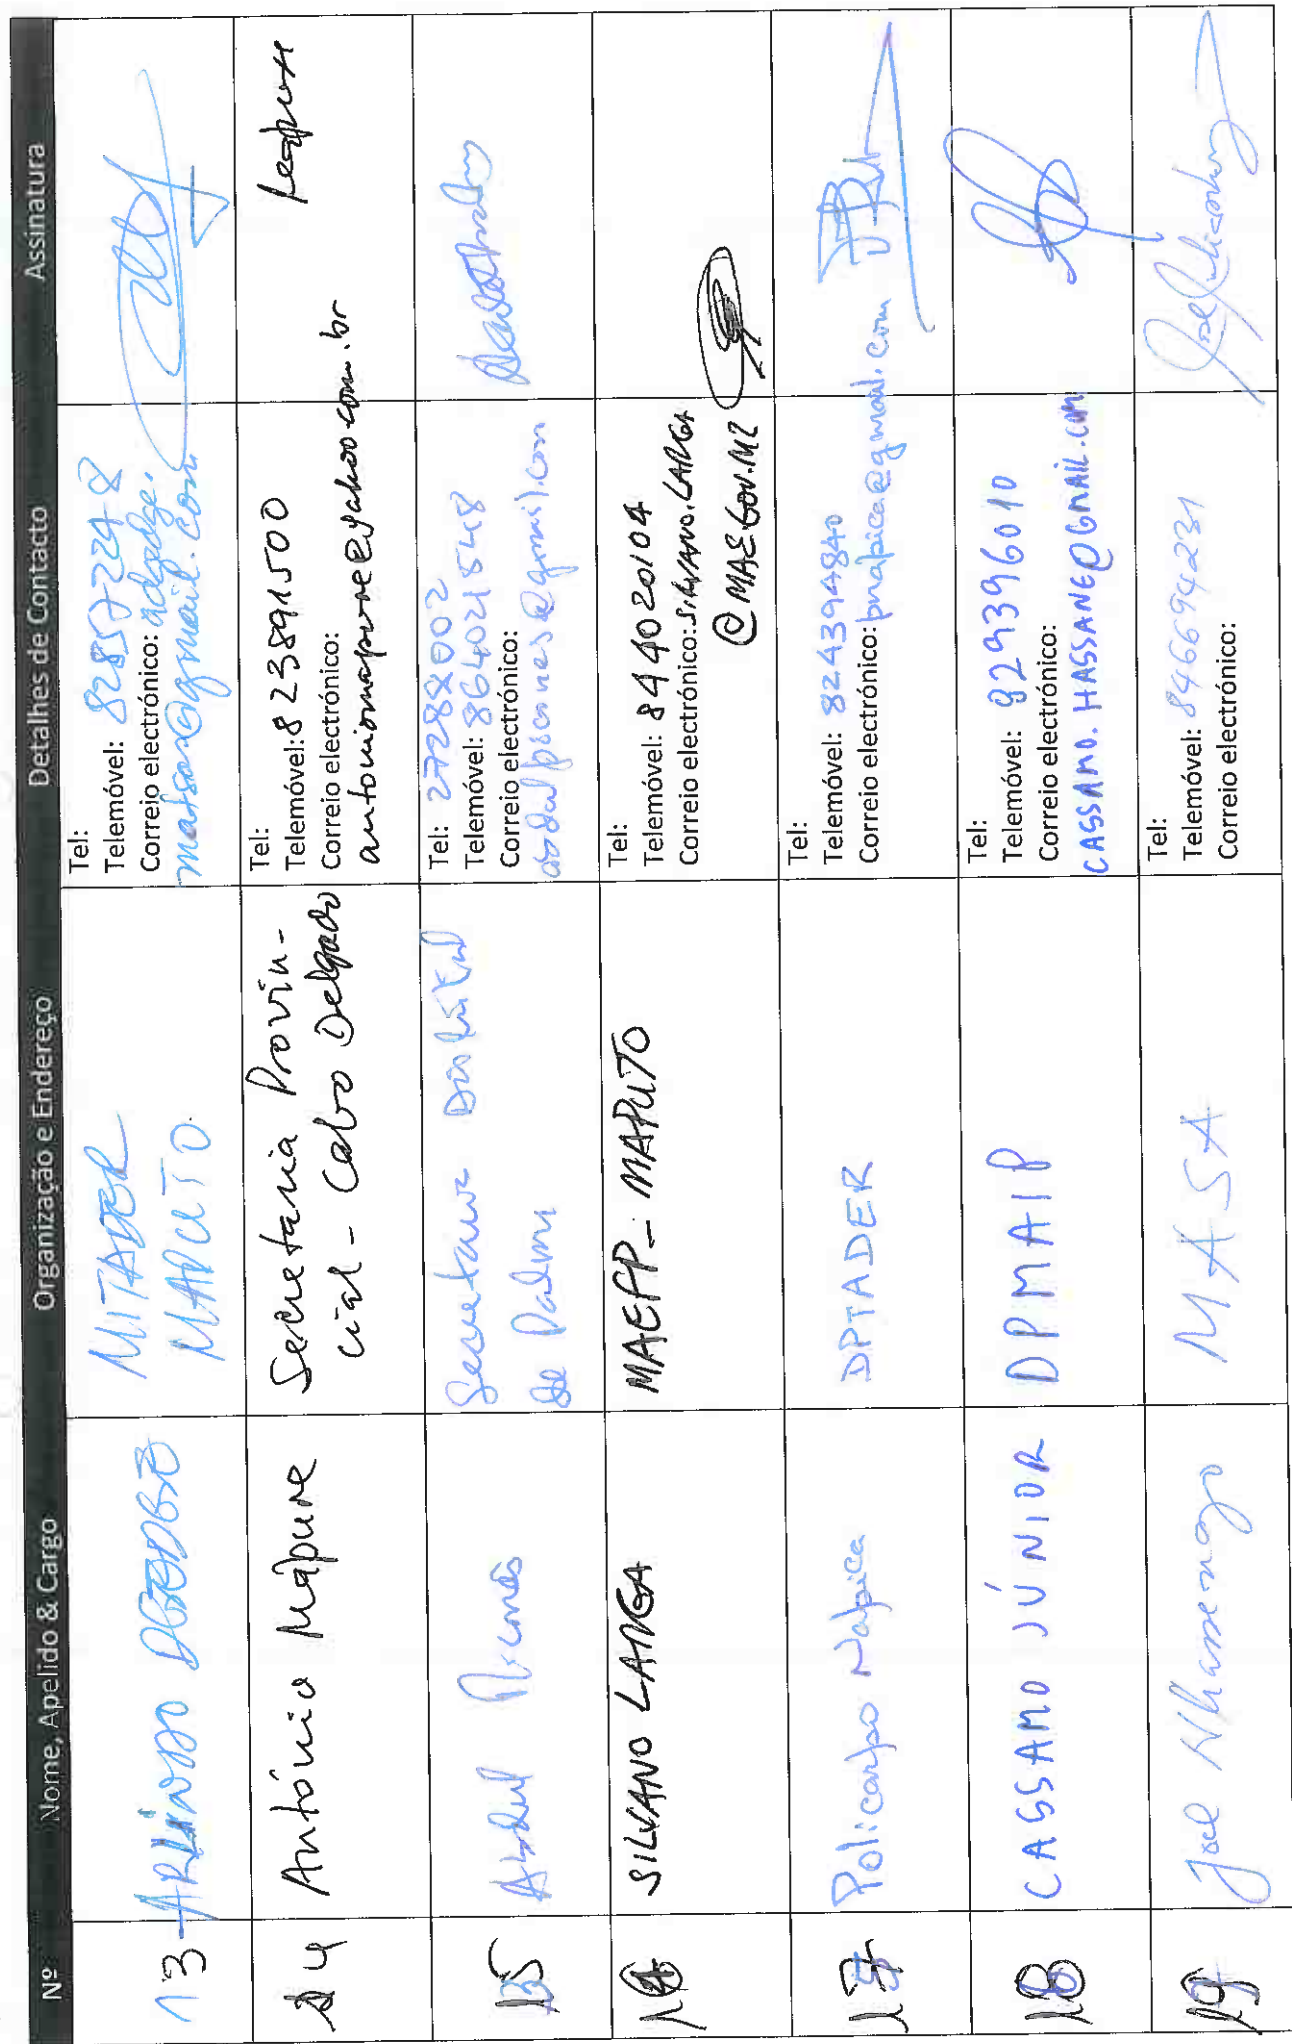 Nº Nome, Apelido & Cargo Organização e Endereço Detalhes de Contacto Assinatura
13 ARLINDO DGEDGE
MITADER
MAPUTO
Tel:
Telemóvel: 828572248
Correio electrónico: adgedge.
matsan@gmail.com
14 António Mapure
Secretaria Provin-
cial - Cabo Delgado
Tel:
Telemóvel: 823891500
Correio electrónico:
antoniomapure@yahoo.com.br
15 Abdul Piconês
Secretaria Distrital
de Palma
Tel: 27288002
Telemóvel: 864021548
Correio electrónico:
abdulpicones@gmail.com
16 SILVANO LANGA
MAEFP - MAPUTO
Tel:
Telemóvel: 844020104
Correio electrónico: SILVANO.LANGA
@MAE.GOV.MZ
17 Policarpo Napica
DPTADER
Tel:
Telemóvel: 824394840
Correio electrónico: pnapica@gmail.com
18 CASSAMO JÚNIOR
DPMAIP
Tel:
Telemóvel: 829396010
Correio electrónico:
CASSAMO.HASSANE@GMAIL.COM
19 José Nhamsenago
MASA
Tel:
Telemóvel: 846694231
Correio electrónico: